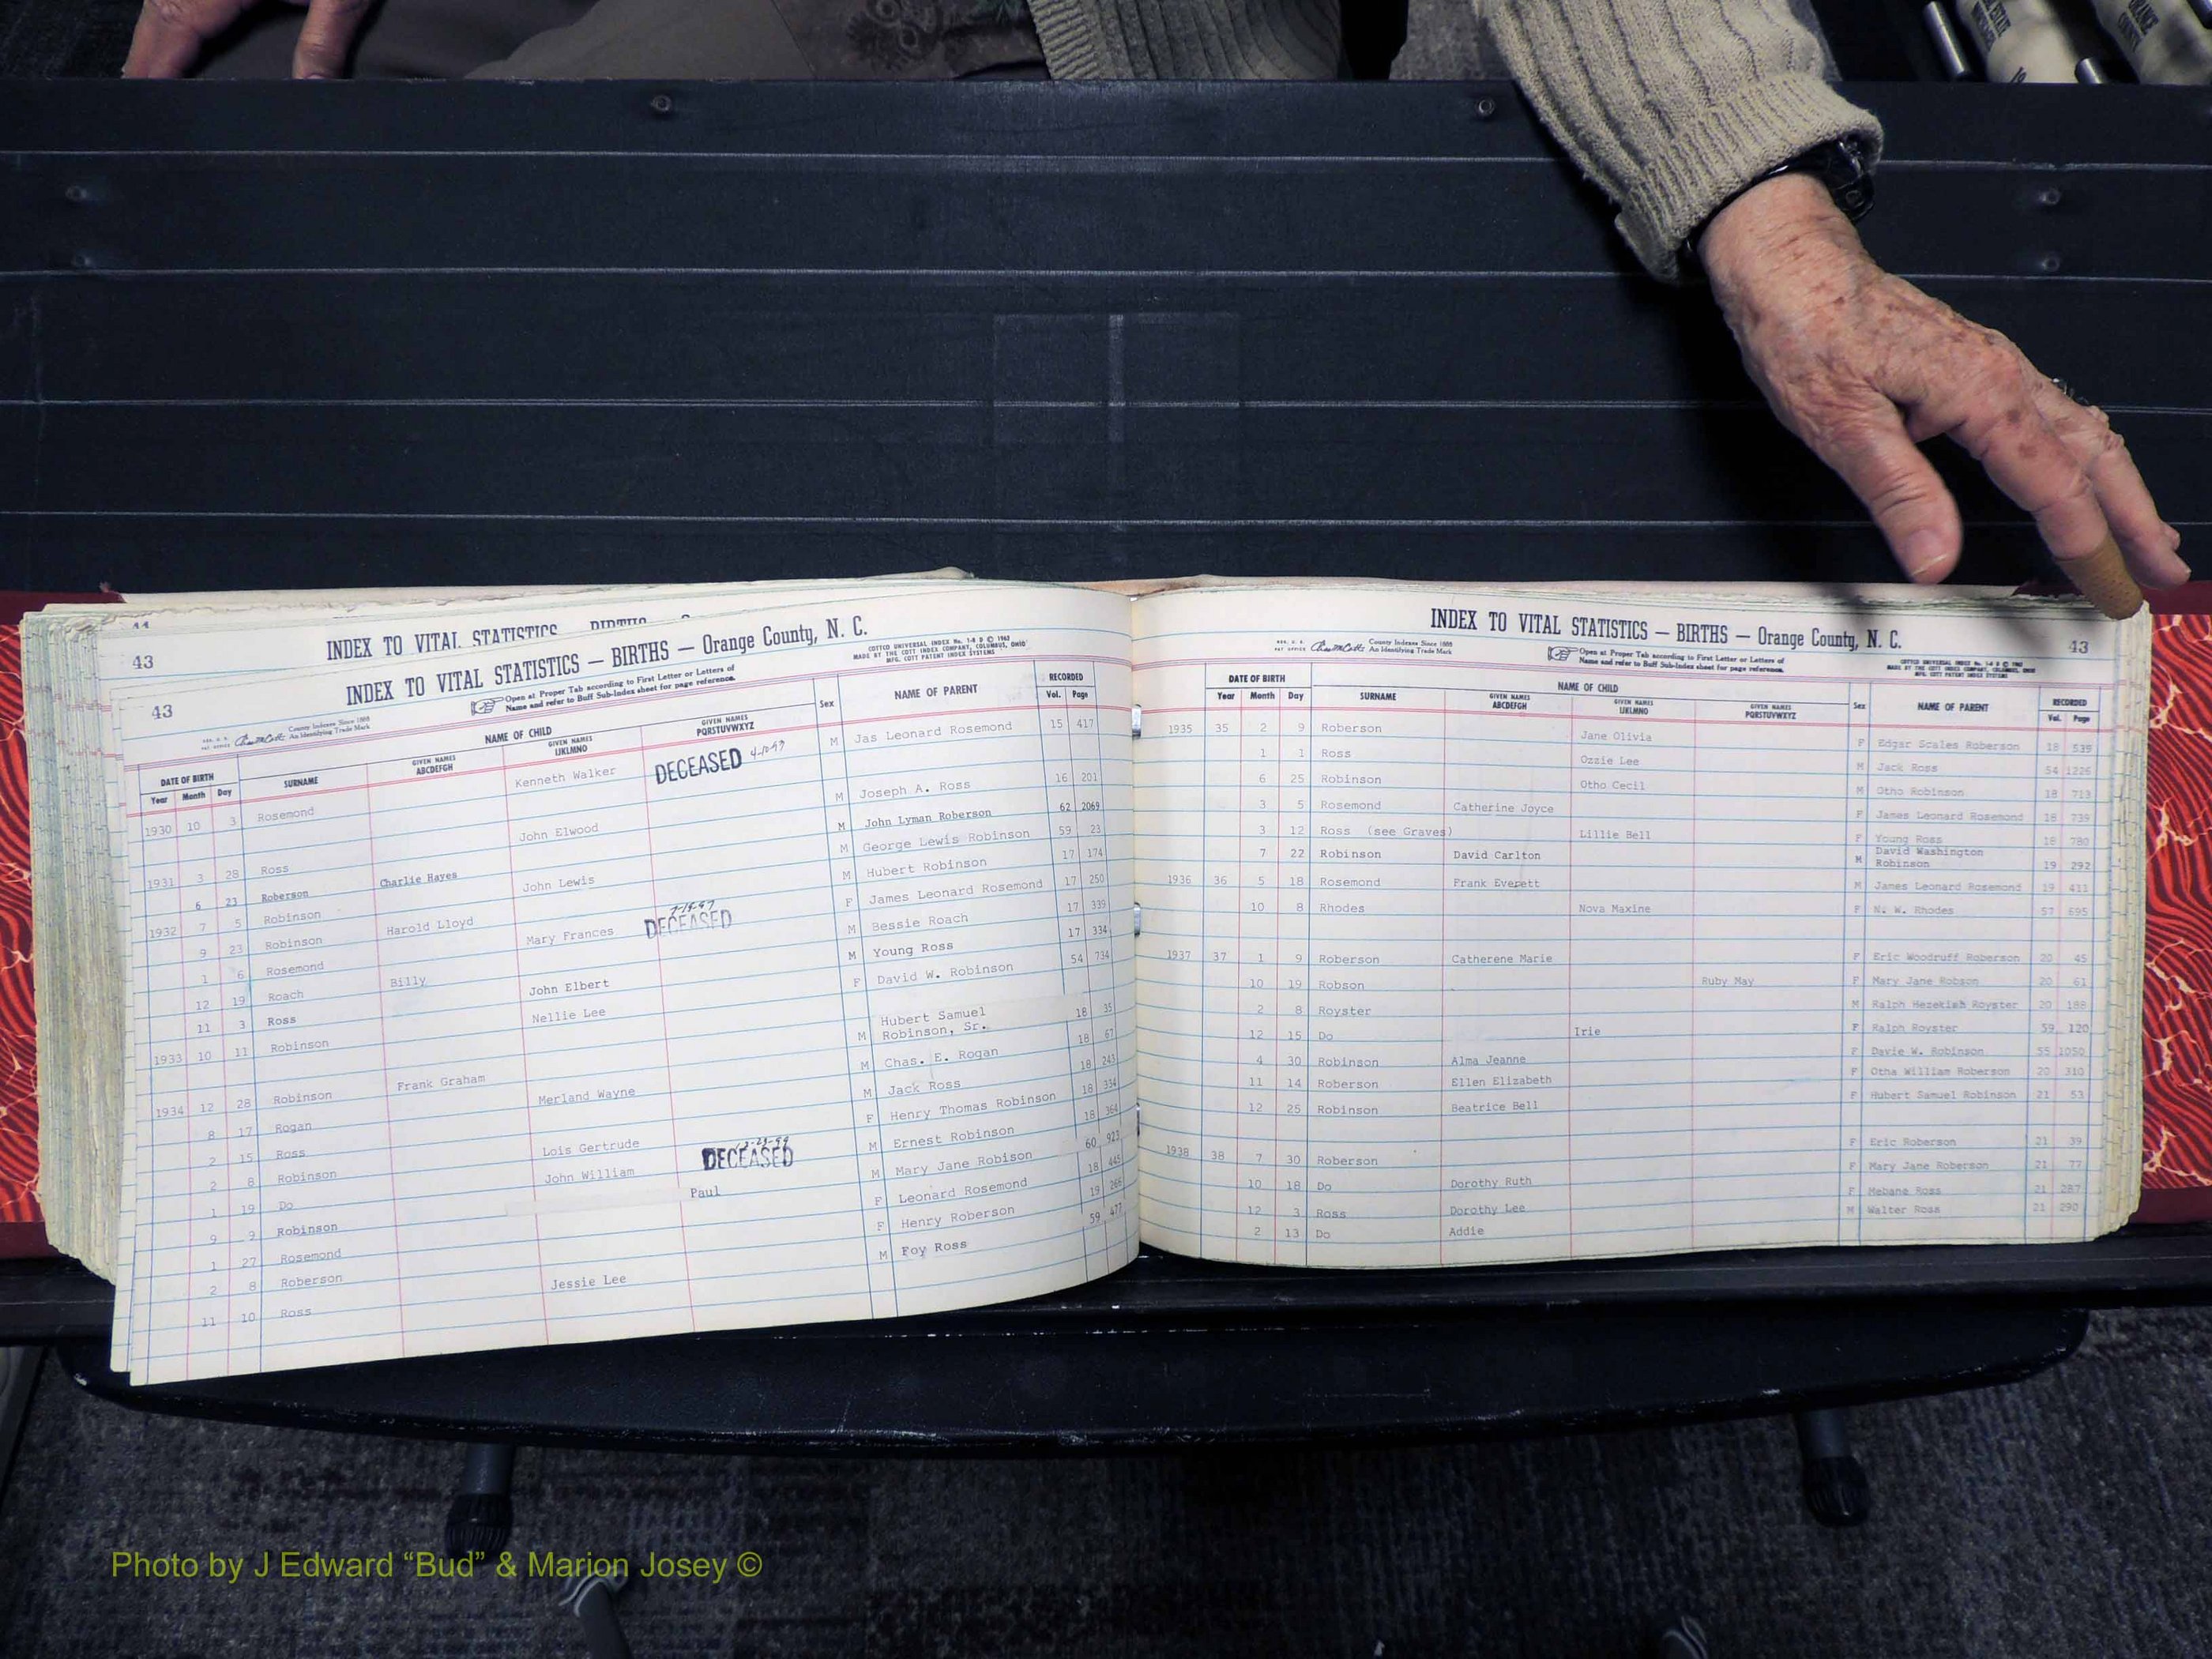 44
INDEX TO VITAL STATISTICS BIRTHS
43
INDEX TO VITAL STATISTICS — BIRTHS — Orange County, N. C.
43
REG. U. S. PAT. OFFICE County Indexes Since 1888 An Identifying Trade Mark
Open at Proper Tab according to First Letter or Letters of
Name and refer to Buff Sub-Index sheet for page reference.
COTTCO UNIVERSAL INDEX No. 1-8 B © 1962
MADE BY THE COTT INDEX COMPANY, COLUMBUS, OHIO
MFG. COTT PATENT INDEX SYSTEMS
DATE OF BIRTH NAME OF CHILD Sex NAME OF PARENT RECORDED
Year Month Day SURNAME GIVEN NAMES ABCDEFGH GIVEN NAMES IJKLMNO GIVEN NAMES PQRSTUVWXYZ Vol. Page
1930 10 3 Rosemond Kenneth Walker DECEASED 4-10-97 M Jas Leonard Rosemond 15 417
1931 3 28 Ross John Elwood M Joseph A. Ross 16 201
6 23 Roberson Charlie Hayes M John Lyman Roberson 62 2069
1932 7 5 Robinson John Lewis M George Lewis Robinson 59 23
9 23 Robinson Harold Lloyd M Hubert Robinson 17 174
1 6 Rosemond Mary Frances DECEASED F James Leonard Rosemond 17 250
12 19 Roach Billy M Bessie Roach 17 339
11 3 Ross John Elbert M Young Ross 17 334
1933 10 11 Robinson Nellie Lee F David W. Robinson 54 734
1934 12 28 Robinson Frank Graham M Hubert Samuel Robinson, Sr. 18 35
8 17 Rogan Merland Wayne M Chas. E. Rogan 18 67
2 15 Ross M Jack Ross 18 243
2 8 Robinson Lois Gertrude F Henry Thomas Robinson 18 354
1 19 Do John William DECEASED M Ernest Robinson 18 364
9 9 Robinson Paul M Mary Jane Robison 60 923
1 27 Rosemond F Leonard Rosemond 18 445
2 8 Roberson F Henry Roberson 19 266
11 10 Ross Jessie Lee M Foy Ross 59 477
INDEX TO VITAL STATISTICS — BIRTHS — Orange County, N. C.
43
County Indexes Since 1888 An Identifying Trade Mark
Open at Proper Tab according to First Letter or Letters of
Name and refer to Buff Sub-Index sheet for page reference.
DATE OF BIRTH NAME OF CHILD Sex NAME OF PARENT RECORDED
Year Month Day SURNAME GIVEN NAMES ABCDEFGH GIVEN NAMES IJKLMNO GIVEN NAMES PQRSTUVWXYZ Vol. Page
1935 35 2 9 Roberson Jane Olivia F Edgar Scales Roberson 18 539
1 1 Ross Ozzie Lee M Jack Ross 54 1226
6 25 Robinson Otho Cecil M Otho Robinson 18 713
3 5 Rosemond Catherine Joyce F James Leonard Rosemond 18 739
3 12 Ross (see Graves) Lillie Bell F Young Ross 18 780
7 22 Robinson David Carlton M David Washington Robinson 19 292
1936 36 5 18 Rosemond Frank Everett M James Leonard Rosemond 19 411
10 8 Rhodes Nova Maxine F N. W. Rhodes 57 695
1937 37 1 9 Roberson Catherene Marie F Eric Woodruff Roberson 20 45
10 19 Robson Ruby May F Mary Jane Robson 20 61
2 8 Royster M Ralph Hezekiah Royster 20 188
12 15 Do Irie F Ralph Royster 59 120
4 30 Robinson Alma Jeanne F Davie W. Robinson 55 1050
11 14 Roberson Ellen Elizabeth F Otha William Roberson 20 310
12 25 Robinson Beatrice Bell F Hubert Samuel Robinson 21 53
1938 38 7 30 Roberson F Eric Roberson 21 39
10 18 Do Dorothy Ruth F Mary Jane Roberson 21 77
12 3 Ross Dorothy Lee F Mebane Ross 21 287
2 13 Do Addie M Walter Ross 21 290
Photo by J Edward “Bud” & Marion Josey ©